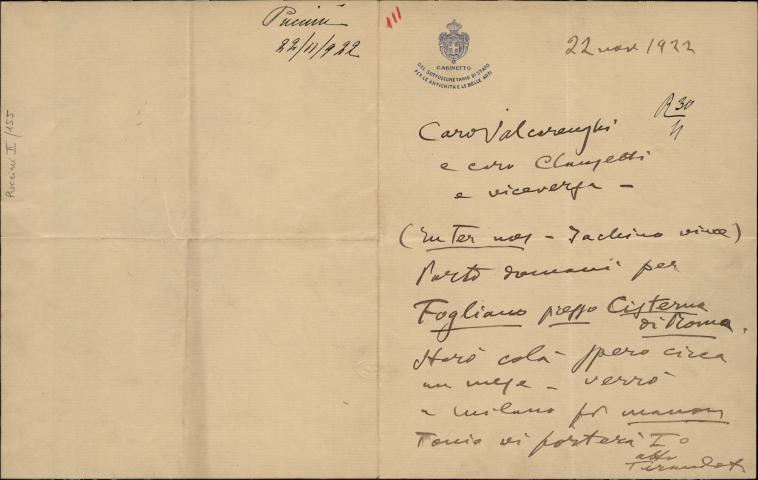 Puccini
22/11/922
Puccini II/155
111
GABINETTO
DEL SOTTOSEGRETARIO DI STATO
PER LE ANTICHITÀ E LE BELLE ARTI
22 nov 1922
R 30
Caro Valcarenghi
e caro Clausetti
e viceversa -
(Inter nos - Fachino vince)
Parto domani per
Fogliano presso Cisterna
di Roma.
Starò colà spero circa
un mese - verrò
a Milano pr manon
Tonio vi porterà Iº
atto
Turandot